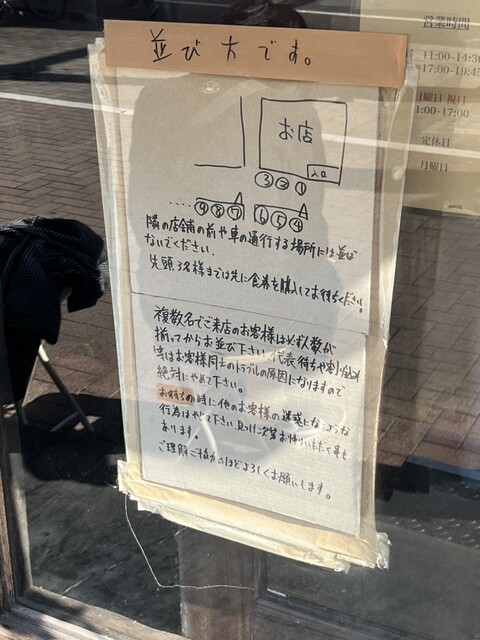 並び方です。
お店
入口
③②①
‥‥⑨⑧⑦ ⑥⑤④
隣の店舗の前や車の通行する場所には並ば
ないでください。
先頭3名様までは先に食券を購入してお待ちください。
複数名でご来店のお客様は必ず人数が
揃ってからお並び下さい。代表待ちや割り込み
等はお客様同士のトラブルの原因になりますので
絶対にやめて下さい。
お待ちの時に他のお客様の迷惑になるような
行為はやめて下さい。見つけ次第お帰りいただく事も
あります。
ご理解ご協力のほどよろしくお願いします。
営業時間
11:00-14:30
17:00-19:45
日曜日 祝日
1:00-17:00
定休日
月曜日